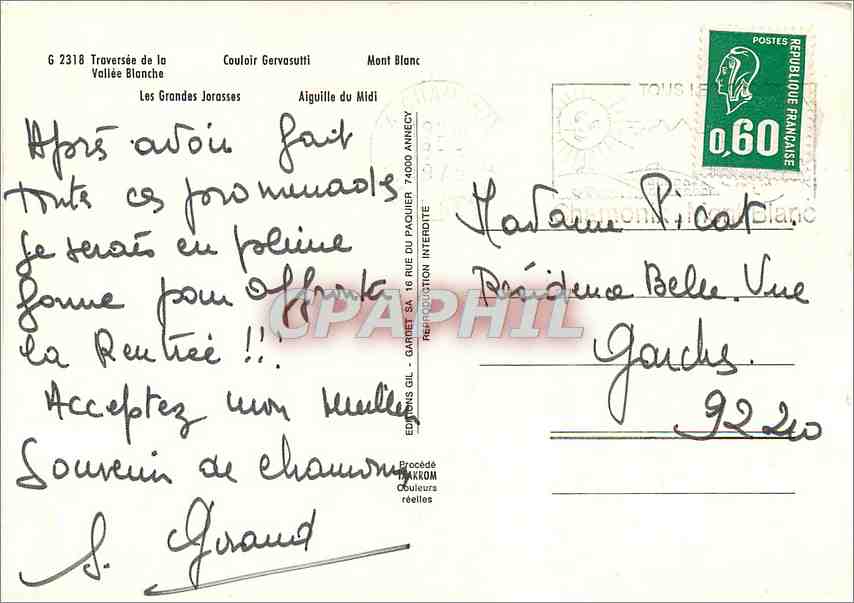 G 2318 Traversée de la Vallée Blanche
Couloir Gervasutti
Mont Blanc
Les Grandes Jorasses
Aiguille du Midi
Après avoir fait
toutes ces promenades
je serais en pleine
forme pour affronter
la Rentrée !!!
Acceptez mon meilleur
Souvenir de Chamonix
S. Giraud
EDITIONS GIL - GARDET SA 16 RUE DU PAQUIER 74000 ANNECY
REPRODUCTION INTERDITE
Procédé
Couleurs
réelles
CPAPHIL
POSTES
REPUBLIQUE FRANÇAISE
0,60
TOUS LE
Chamonix Mont Blanc
Madame Picat.
Résidence Belle. Vue
Garches.
92210